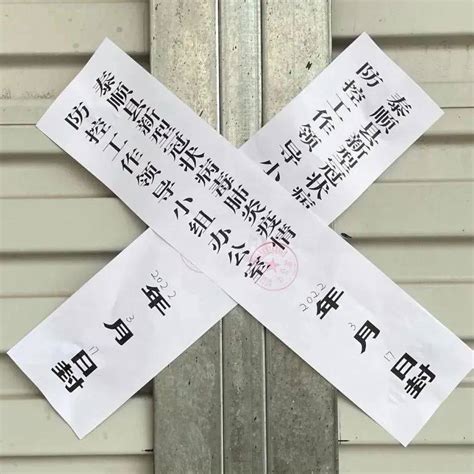 泰顺县新型冠状病毒肺炎疫情
防控工作领导小组办公室
2022年3月17日封
泰顺县新型冠状病
防控工作领导小
2022年3月日封